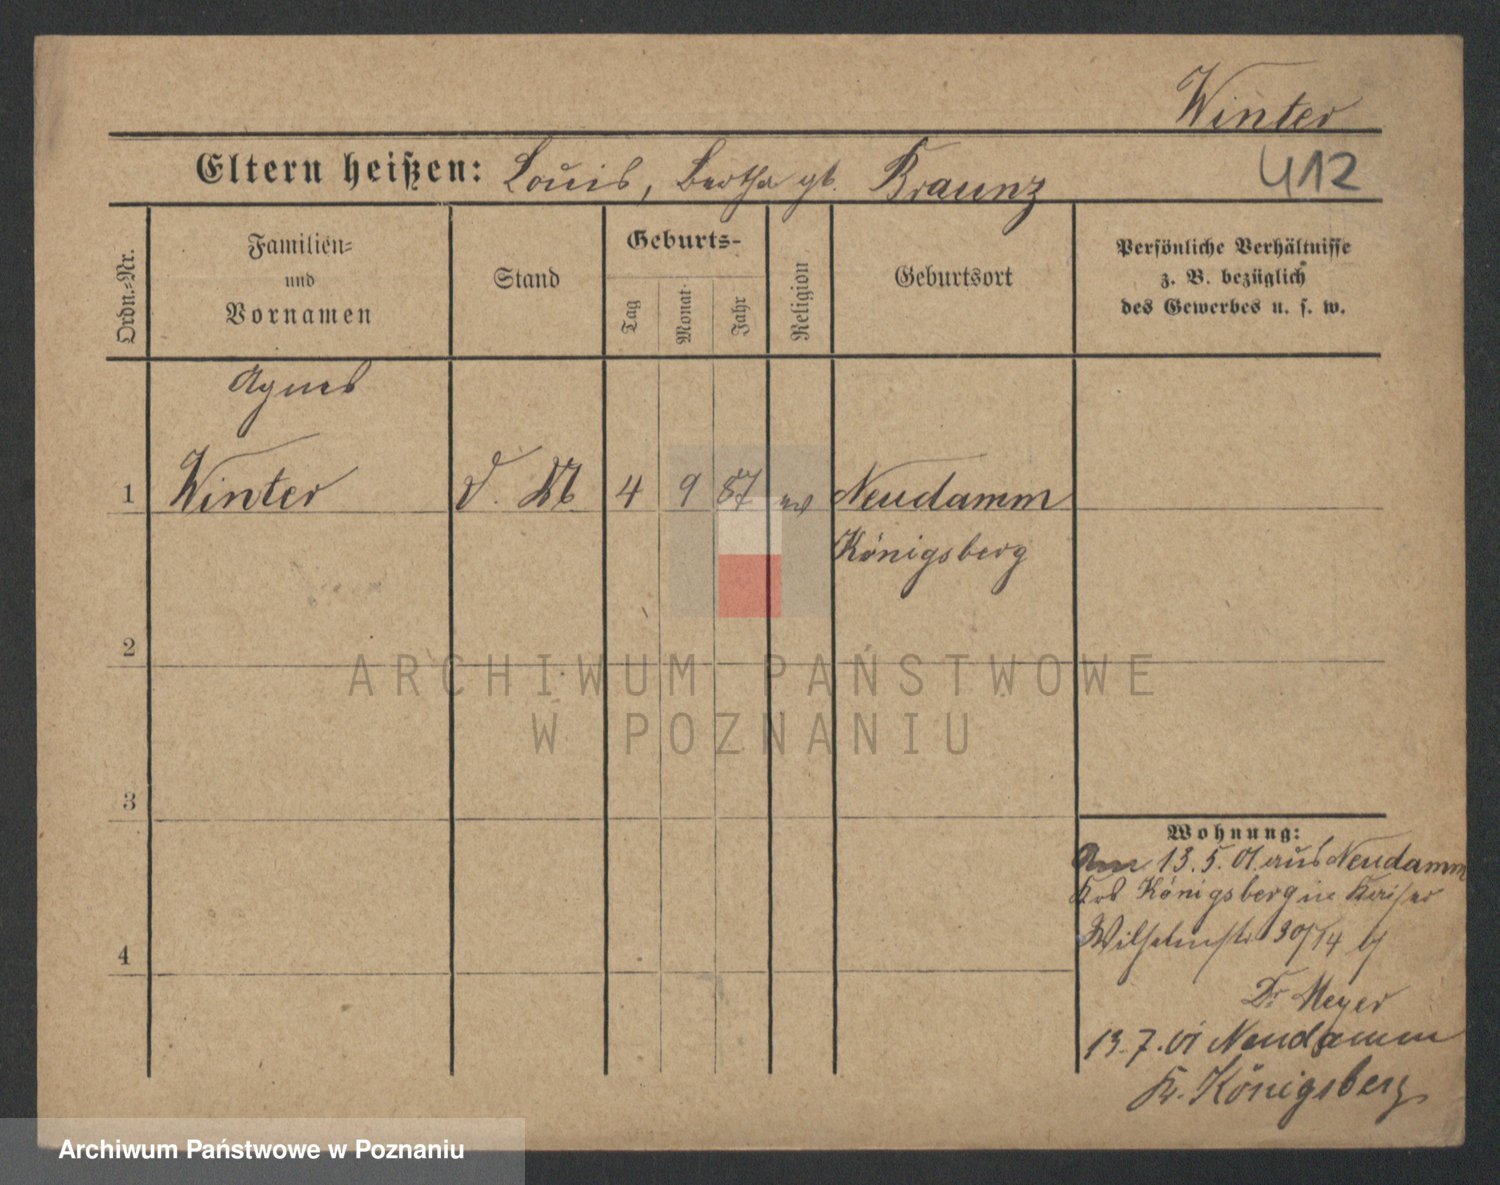 Winter
Eltern heißen: Louis, Bertha gb. Braunz
412
Ordn.-Nr.
Familien-
und
Vornamen
Stand
Geburts-
Tag
Monat
Jahr
Religion
Geburtsort
Persönliche Verhältnisse
z. B. bezüglich
des Gewerbes u. s. w.
Agnes
1 Winter d. M. 4 9 87 ev Neudamm
Königsberg
2
ARCHIWUM PAŃSTWOWE
W POZNANIU
3
Wohnung:
Am 13.5.01. aus Neudamm
Krs Königsberg in Kaiser
Wilhelmstr 30/14 b/
4
Dr Meyer
13.7.01 Neudamm
Kr. Königsberg
Archiwum Państwowe w Poznaniu